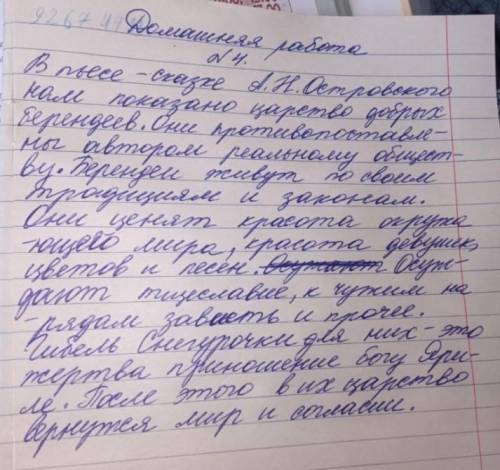 9267 49
Домашняя работа
№4.
В пьесе - сказке А.Н.Островского
нам показано царство добрых
берендеев. Они противопоставле-
ны автором реальному общест-
ву. Берендеи живут по своим
традициям и законам.
Они ценят красота окружа
-ющего мира, красота девушек,
цветов и песен. Осуж-
дают тщеславие, к чужим на
-рядам зависть и прочее.
Гибель Снегурочки для них - это
жертва приношение богу Яри-
ле. После этого в их царство
вернутся мир и согласии.